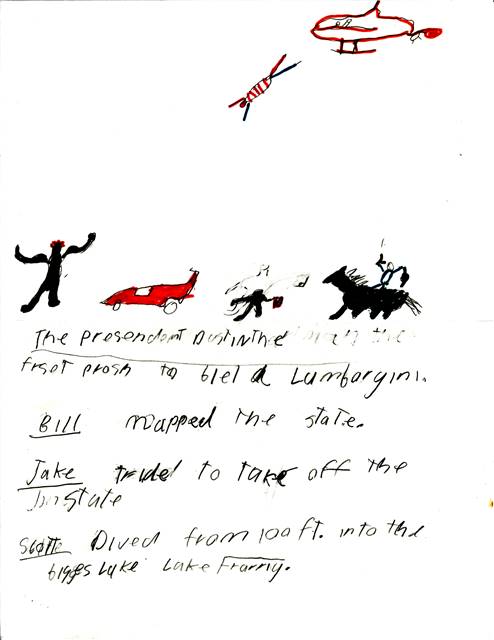 The presendant
frsot prosn to bield a Lumborgini.
Bill mapped the state.
Jake to take off the
State
Dived from 100 ft. into the
bigges Lake Lake Franny.